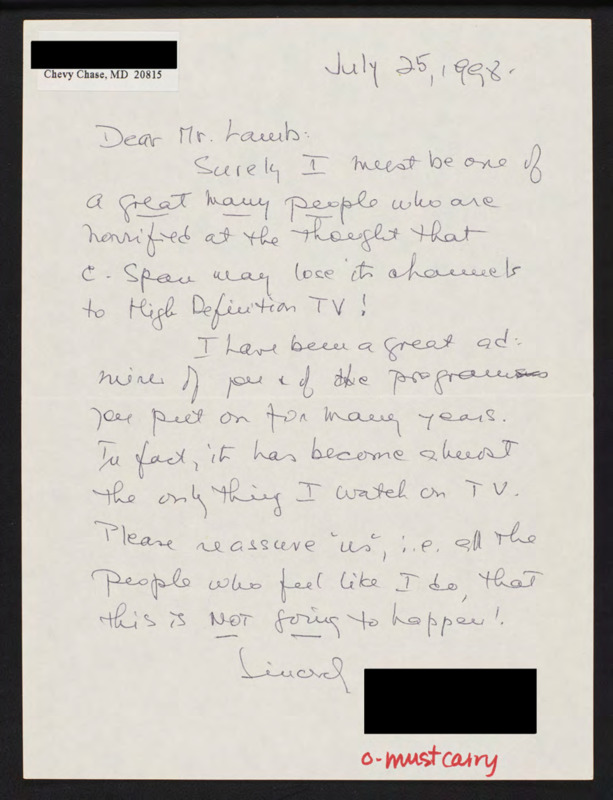 Chevy Chase, MD 20815
July 25, 1998.
Dear Mr. Lamb:
Surely I must be one of
a great many people who are
horrified at the thought that
C-Span may lose its channels
to High Definition TV!
I have been a great ad-
mirer of you & of the programs
you put on for many years.
In fact, it has become almost
the only thing I watch on TV.
Please reassure "us", i.e. all the
people who feel like I do, that
this is NOT going to happen!
Sincerely
o-must carry